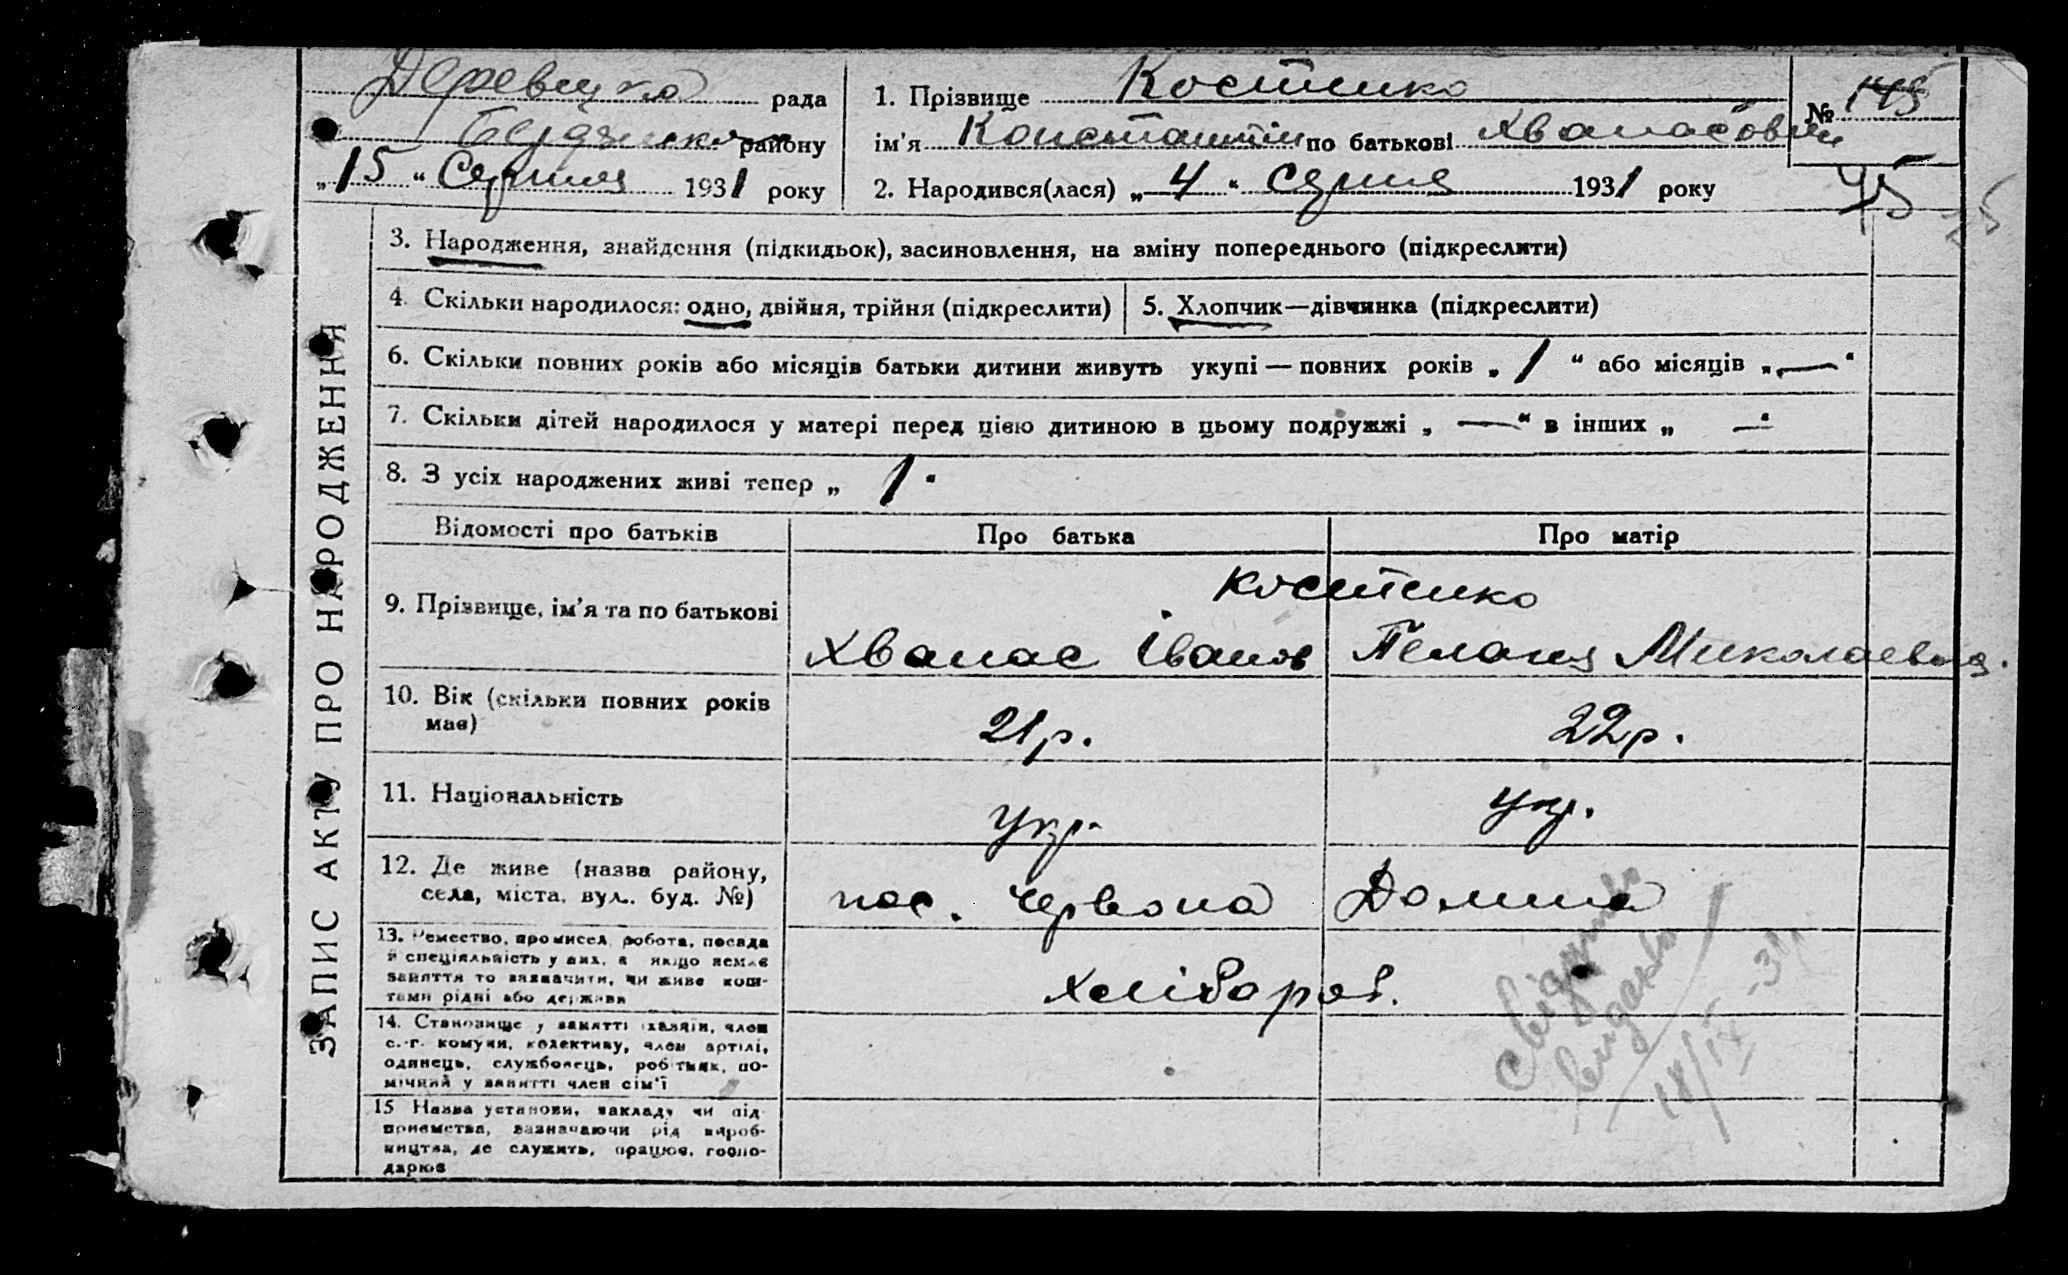 рада
району
„15“ Серпня 1931 року
1. Прізвище Костенко
ім'я Константин по батькові Хванасович
2. Народився(лася) „4“ серпня 1931 року
№ 145
45
ЗАПИС АКТУ ПРО НАРОДЖЕННЯ
3. Народження, знайдення (підкидьок), засиновлення, на зміну попереднього (підкреслити)
4. Скільки народилося: одно, двійня, трійня (підкреслити)
5. Хлопчик—дівчинка (підкреслити)
6. Скільки повних років або місяців батьки дитини живуть укупі — повних років „1“ або місяців „—“
7. Скільки дітей народилося у матері перед цією дитиною в цьому подружжі „—“ в інших „—“
8. З усіх народжених живі тепер „1“
Відомості про батьків Про батька Про матір
9. Прізвище, ім'я та по батькові
Костенко
Хванас Іванов Пелагея Миколаевна.
10. Вік (скільки повних років
має)
21р. 22р.
11. Національність
укр. укр.
12. Де живе (назва району,
села, міста, вул., буд. №)
пос. Червона Долина
13. Ремество, промисел, робота, посада
й спеціяльність у них, а якщо немає
заняття то зазначити, чи живе кош-
тами рідні або держави
хлібороб.
14. Становище у занятті (хазяїн, член
с.-г. комуни, колективу, член артілі,
одинець, службовець, робітник, по-
мічний у занятті член сім'ї
15 Назва установи, закладу чи під-
приємства, зазначаючи рід вироб-
ництва, де служить, працює, госпо-
дарює
видано
18/IX-31